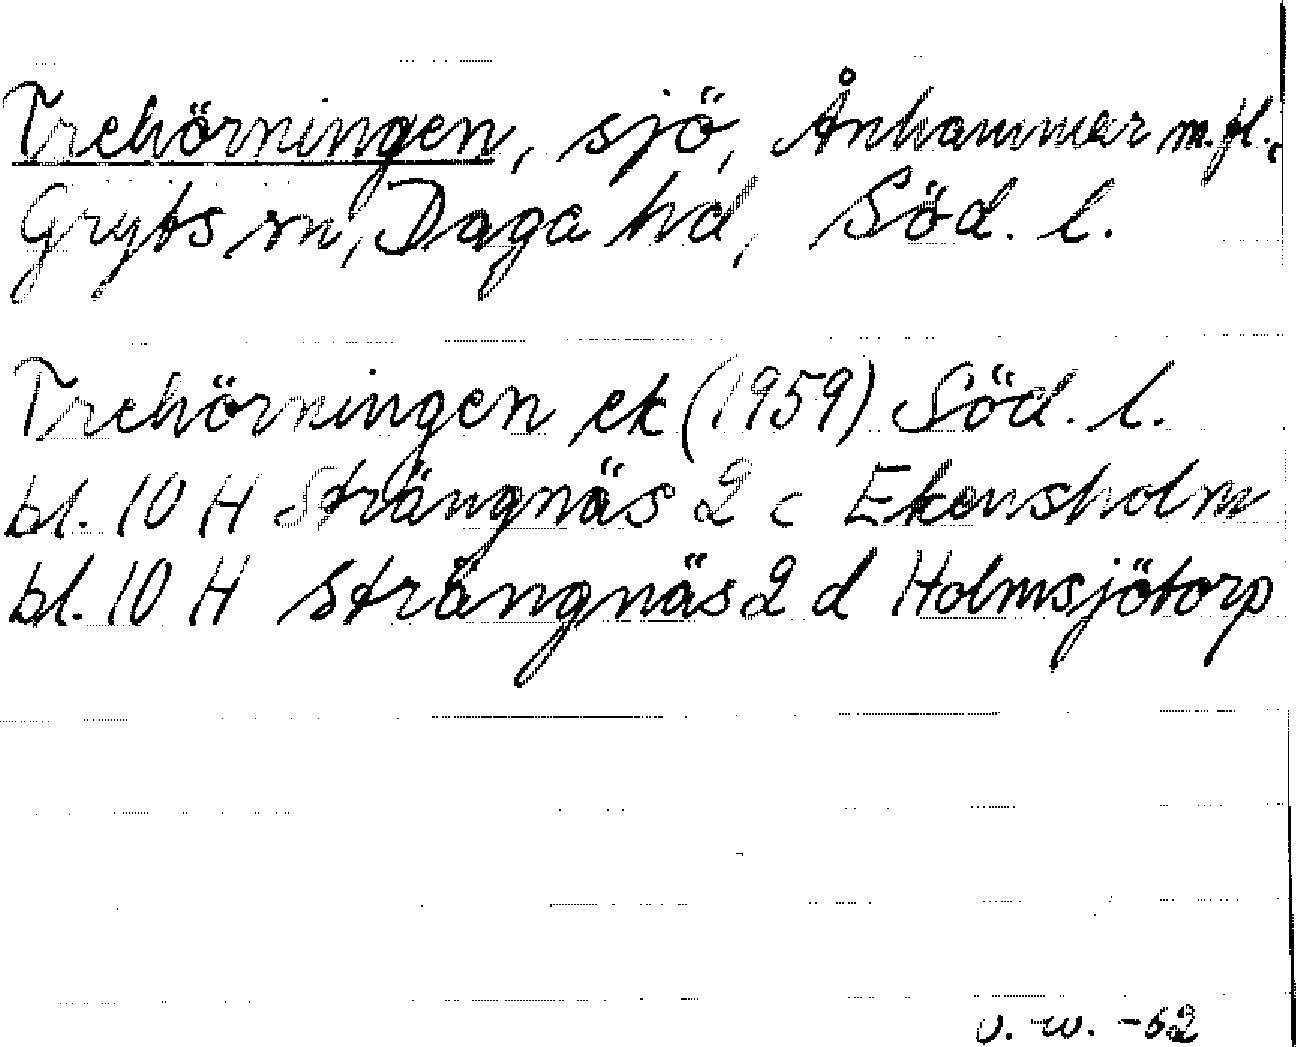 Trehörningen, sjö, Ånhammar m.fl.,
Gryts sn, Daga hd, Söd. l.
Trehörningen ek (1959) Söd. l.
bl. 10 H Strängnäs 2 c Ekensholm
bl. 10 H Strängnäs 2 d Holmsjötorp
U. W. -62